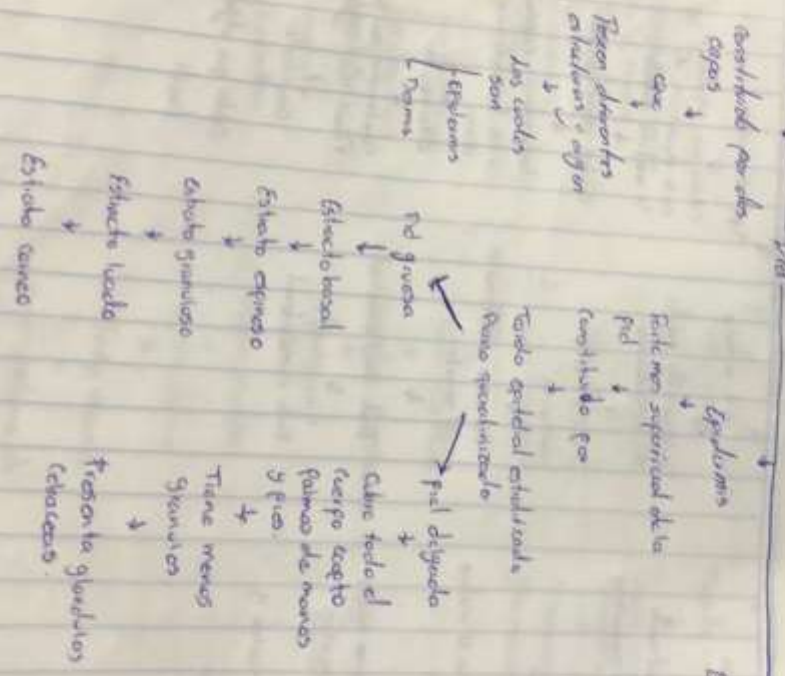 Piel
Constituido por dos
capas
que
Poseen diferentes
estructuras y origen
Los cuales
son
- Epidermis
- Dermis
Epidermis
Parte mas superficial de la
piel
Constituido por
Tejido epitelial estratificado
Plano queratinizado
Piel gruesa
Estracto basal
Estrato espinoso
estrato granuloso
Estracto lucido
Estrato corneo
piel delgada
Cubre todo el
cuerpo excepto
palmas de manos
y pies.
Tiene menos
granulos
Presenta glandulas
Cebaceas.